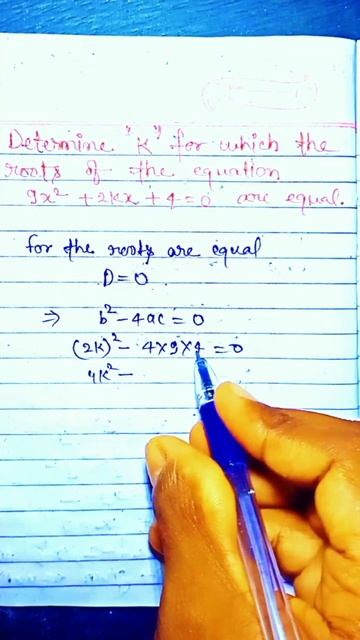 Determine "K" for which the
roots of the equation
9x² + 2kx + 4 = 0 are equal.
for the roots are equal
D = 0
⇒ b² - 4ac = 0
(2k)² - 4×9×4 = 0
4k² -